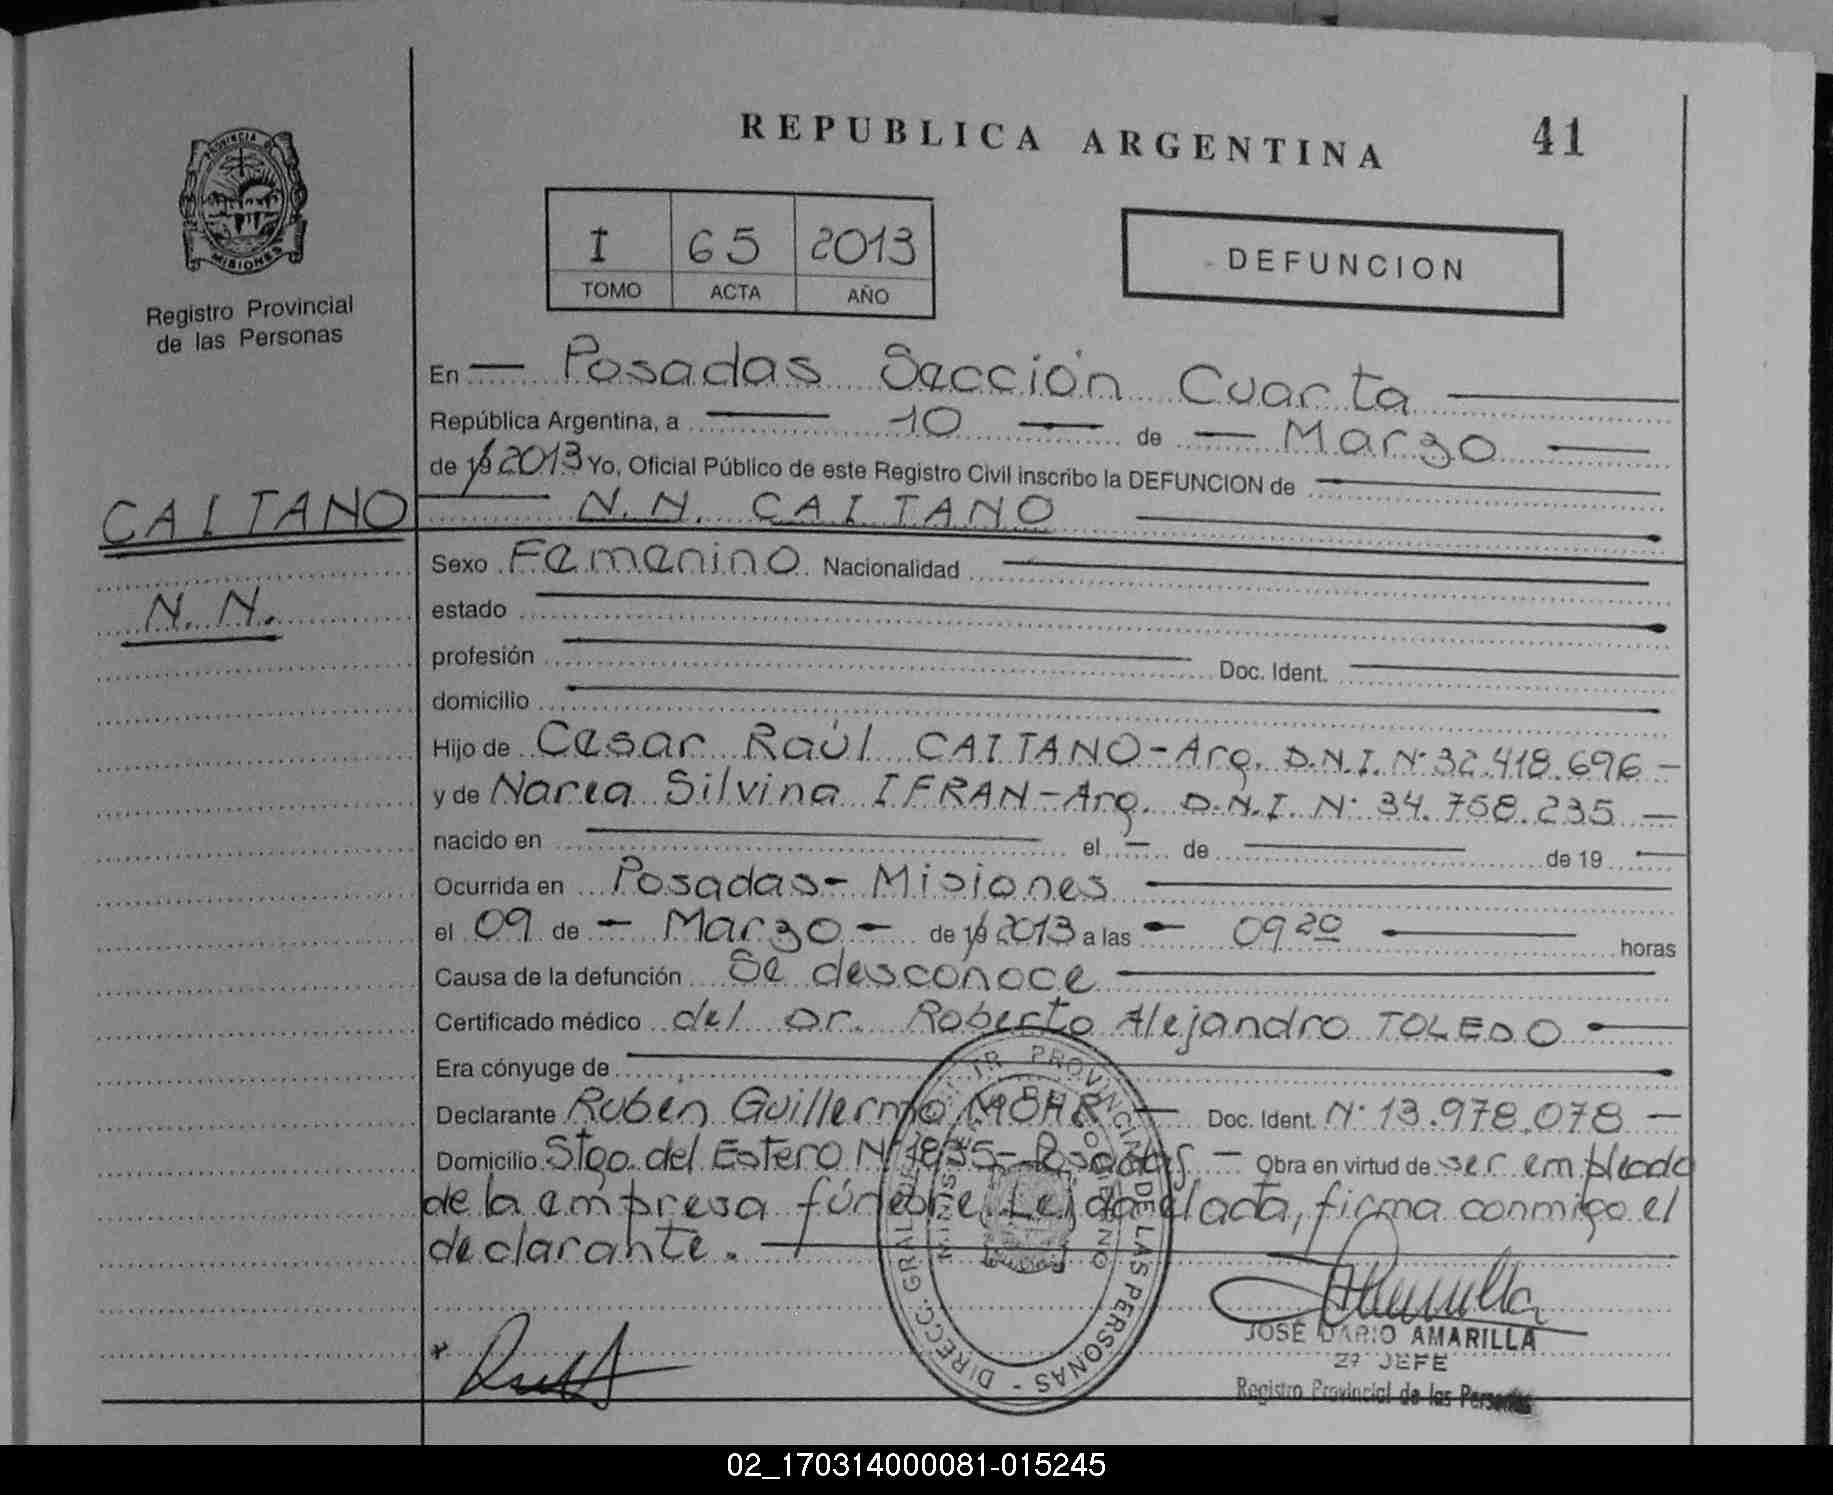 PROVINCIA D
MISIONES
Registro Provincial
de las Personas
CAITANO
N. N.
REPUBLICA ARGENTINA
41
I 65 2013
TOMO ACTA AÑO
DEFUNCION
En Posadas Sección Cuarta
República Argentina, a 10 de Marzo
de 19 2013 Yo, Oficial Público de este Registro Civil inscribo la DEFUNCION de
N. N. CAITANO
Sexo Femenino Nacionalidad
estado
profesión Doc. Ident.
domicilio
Hijo de Cesar Raúl CAITANO - Arg. D.N.I. N° 32.418.696 -
y de Narea Silvina IFRAN - Arg. D.N.I. N° 34.758.235 -
nacido en el de de 19
Ocurrida en Posadas - Misiones
el 09 de - Marzo - de 19 2013 a las - 09 20 horas
Causa de la defunción Se desconoce
Certificado médico del Dr. Roberto Alejandro TOLEDO
Era cónyuge de
Declarante Ruben Guillermo MOHR - Doc. Ident. N° 13.978.078 -
Domicilio Stgo. del Estero N° - Posadas - Obra en virtud de ser empleado
de la empresa fúnebre. Leida el acta, firma conmigo el
declarante.
DIRECC. GRAL. PROVINCIAL DE LAS PERSONAS -
JOSE DARIO AMARILLA
2° JEFE
Registro Provincial de las Personas
02_170314000081-015245